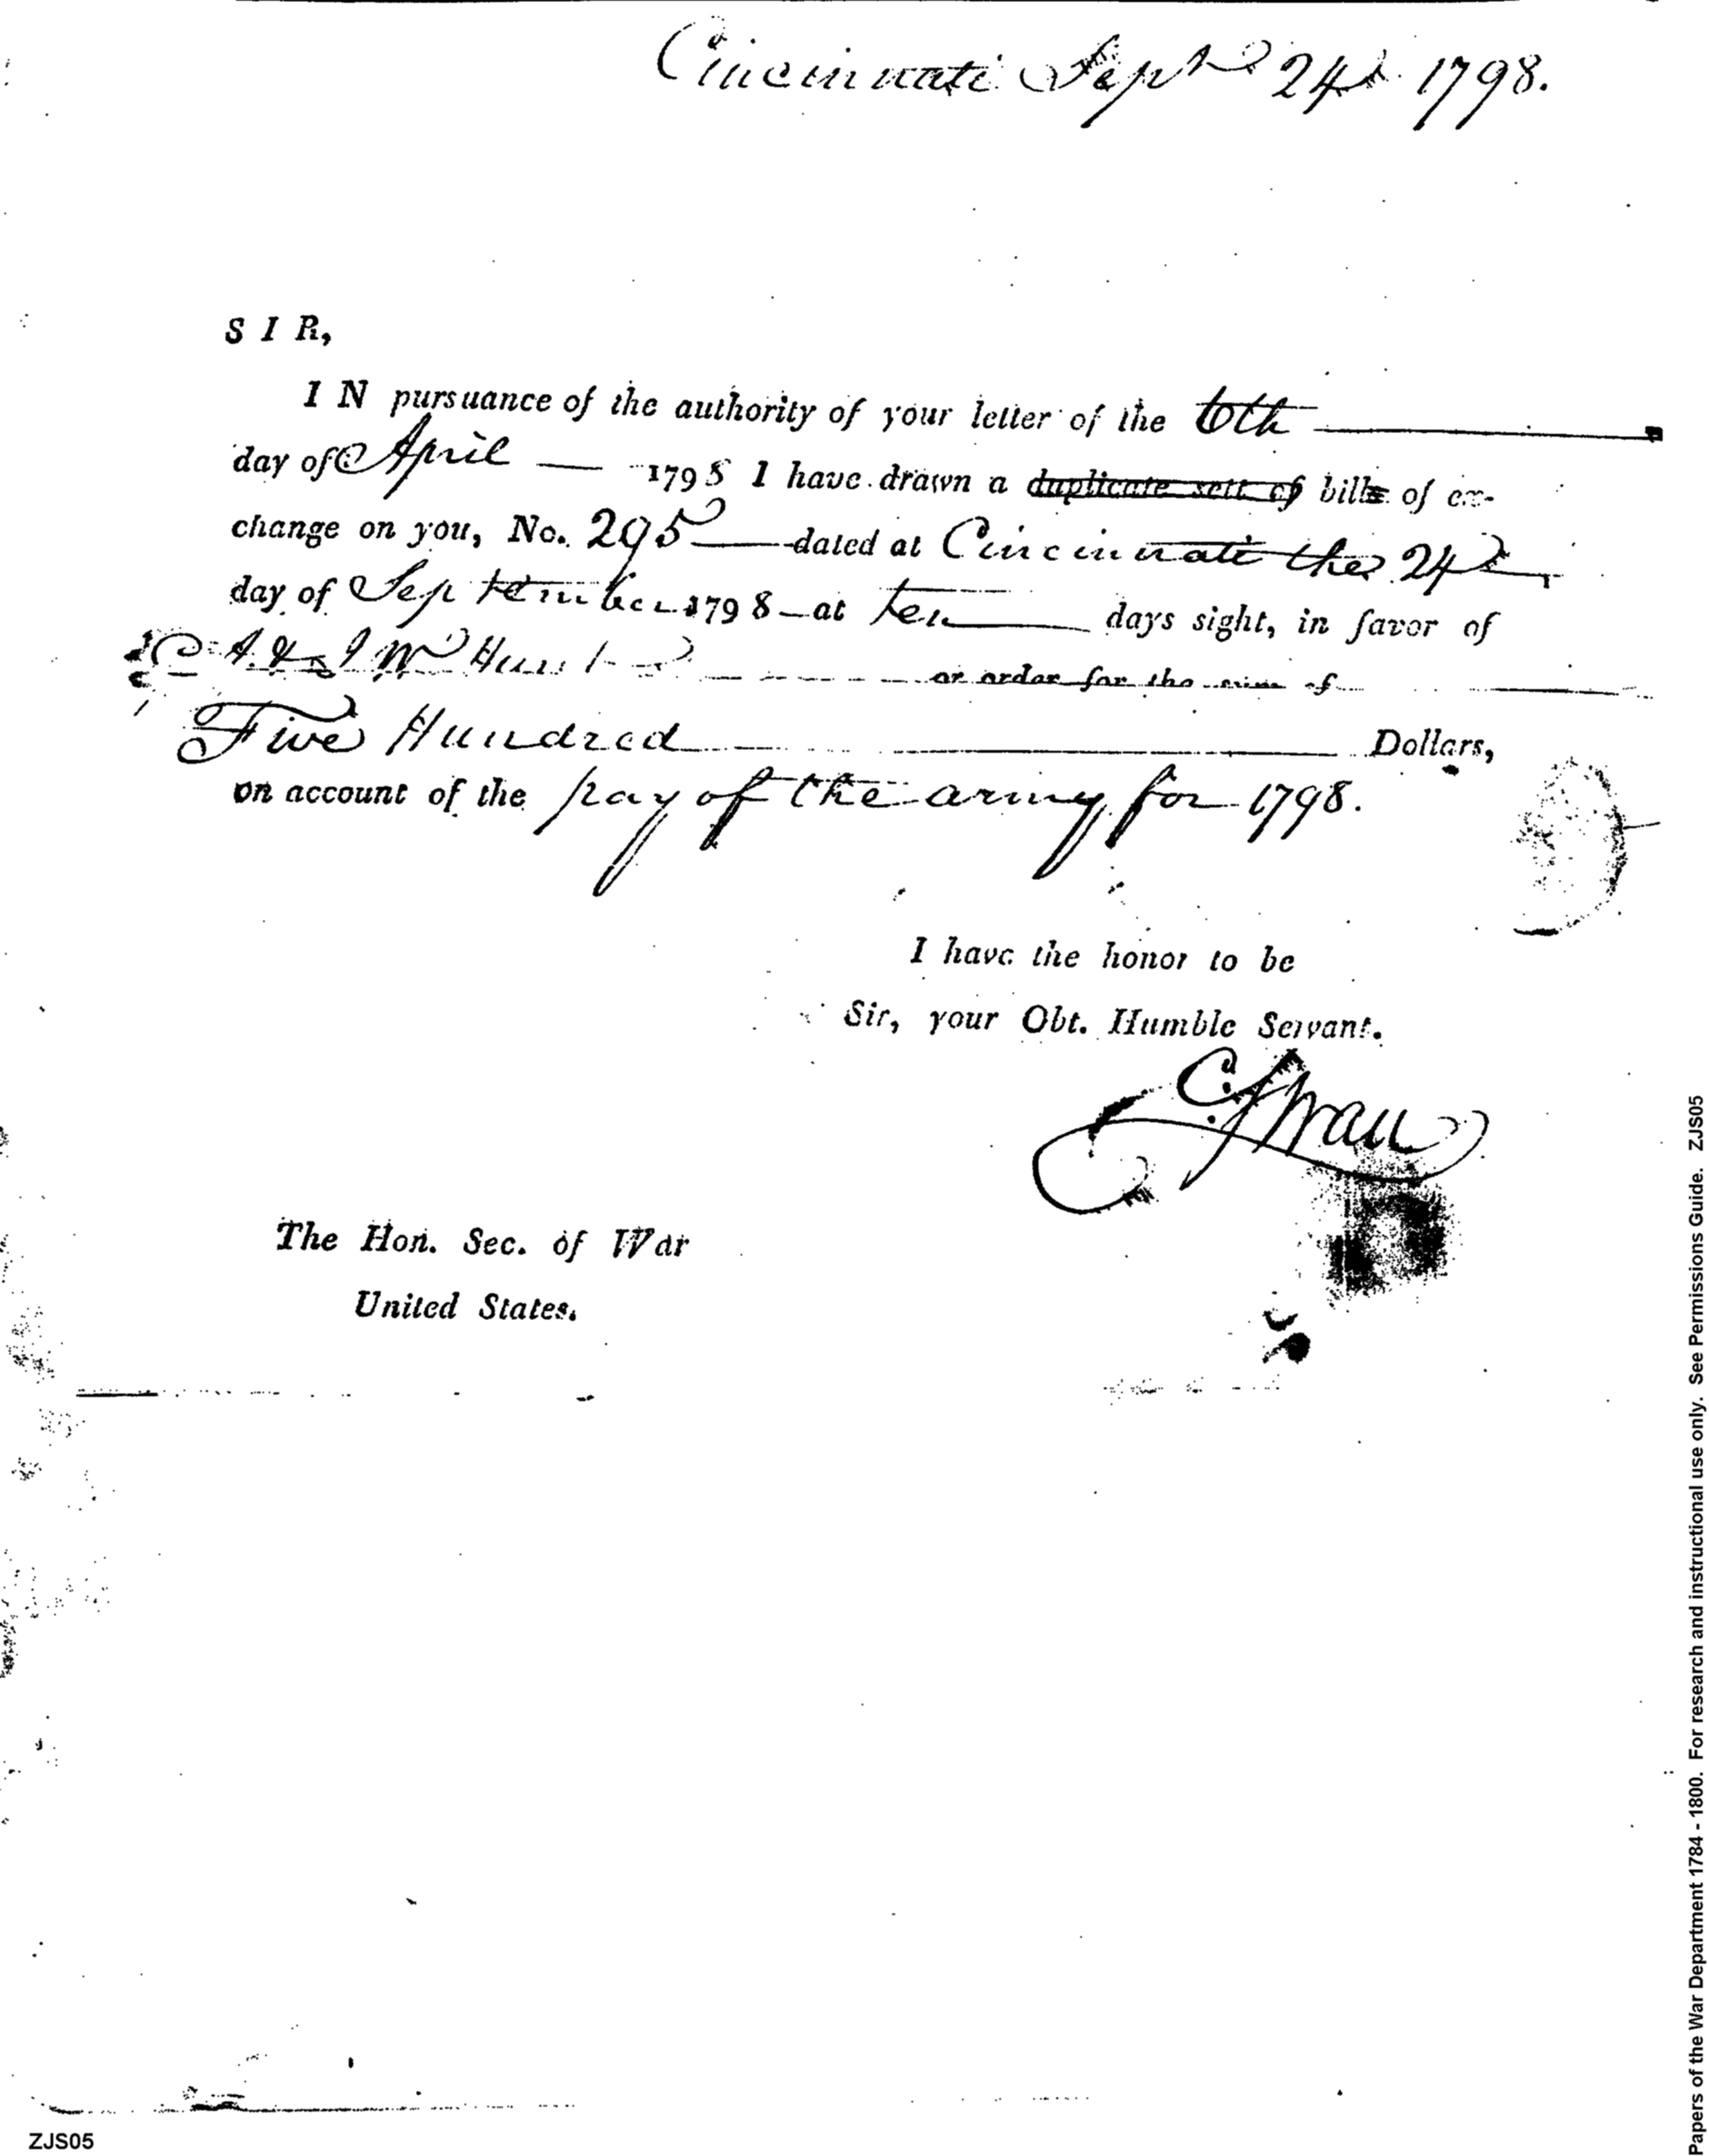 Cincinnati Septr 24d. 1798.
SIR,
IN pursuance of the authority of your letter of the 6th
day of April 1798 I have drawn a duplicate sett of bills of ex-
change on you, No. 295 dated at Cincinnati the 24d
day of September 1798 at ten days sight, in favor of
A. & J W Hunt or order for the sum of
Five Hundred Dollars,
on account of the pay of the army for 1798.
I have the honor to be
Sir, your Obt. Humble Servant.
C. Swan
The Hon. Sec. of War
United States.
ZJS05
Papers of the War Department 1784 - 1800. For research and instructional use only. See Permissions Guide. ZJS05